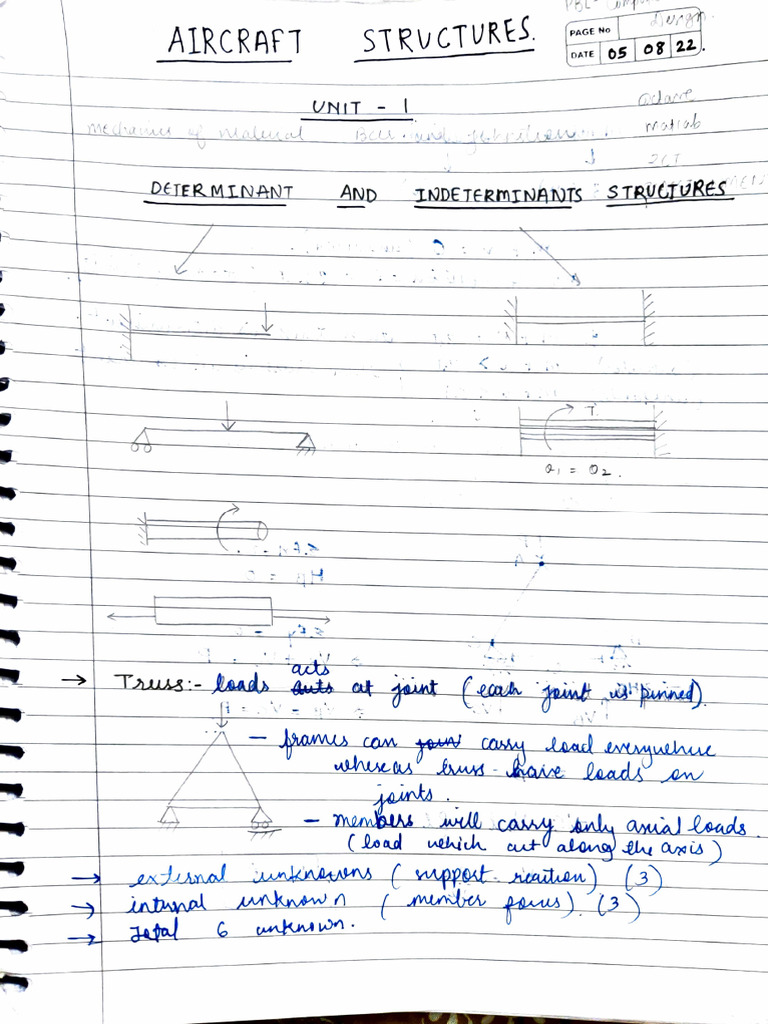 PBL - Computer
AIRCRAFT STRUCTURES.
Design.
PAGE No
DATE 05 08 22.
UNIT - 1
octave
mechanics of material
matlab
DETERMINANT AND INDETERMINANTS STRUCTURES
T.
θ1 = θ2.
→ Truss:- loads acts at joint (each joint is pinned).
- frames can carry load everywhere
whereas truss have loads on
joints.
- members will carry only axial loads.
(load which act along the axis)
→ external unknowns (support reaction) (3)
→ internal unknown (member forces). (3)
→ Total 6 unknown.